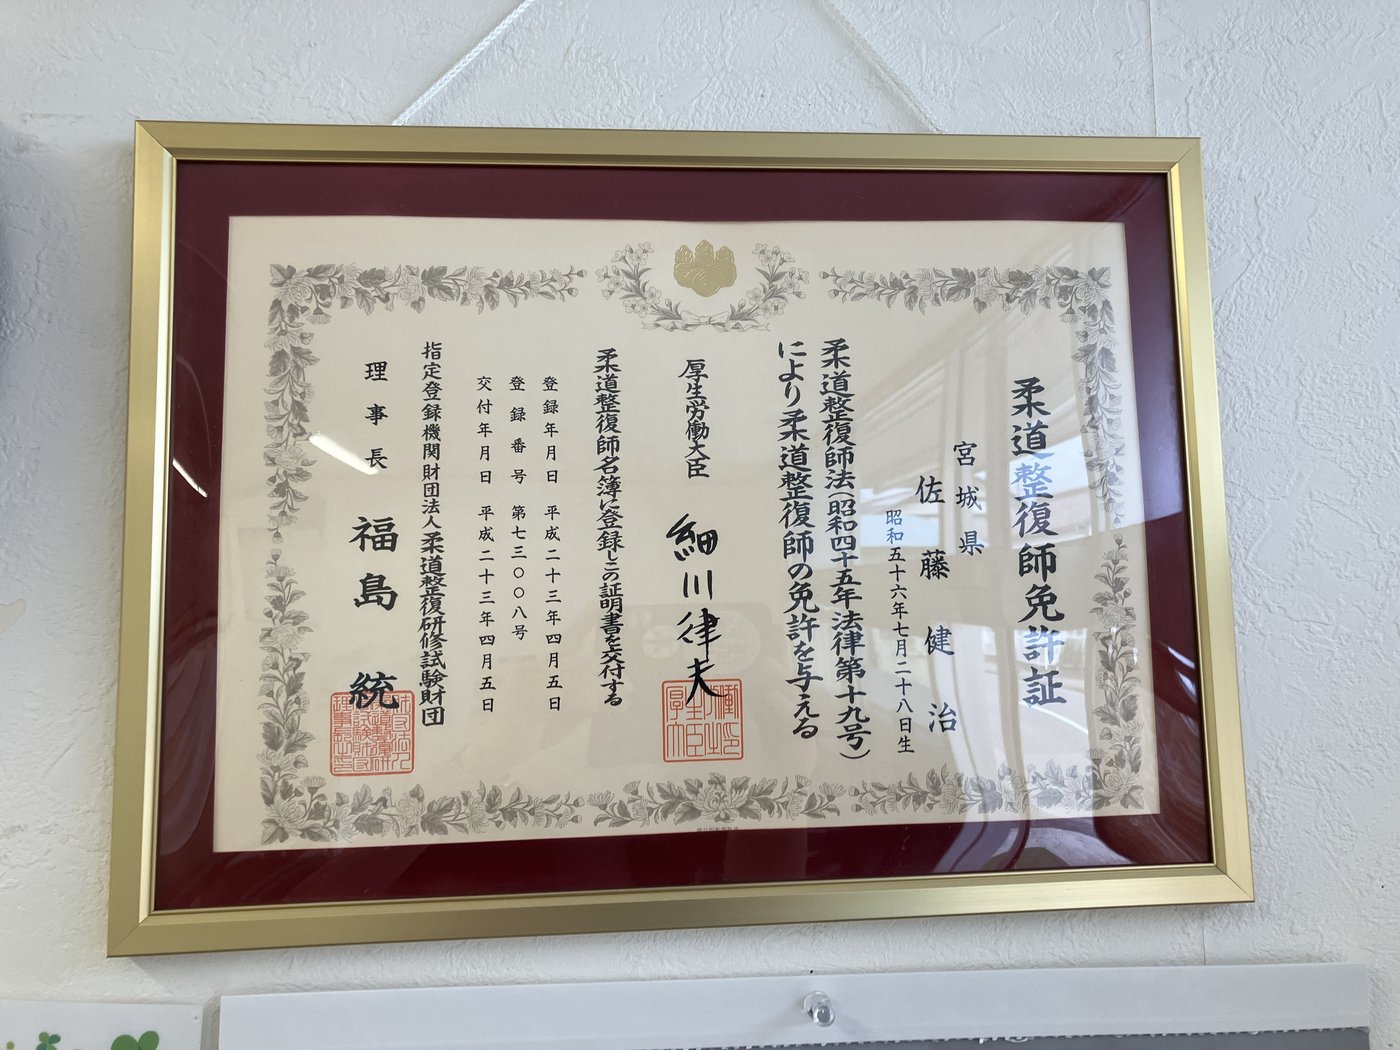 柔道整復師免許証
宮城県
佐藤健治
昭和五十六年七月二十八日生
柔道整復師法(昭和四十五年法律第十九号)
により柔道整復師の免許を与える
厚生労働大臣 細川律夫
柔道整復師名簿に登録しこの証明書を交付する
登録年月日 平成二十三年四月五日
登録番号 第七三〇〇八号
交付年月日 平成二十三年四月五日
指定登録機関財団法人柔道整復研修試験財団
理事長 福島統